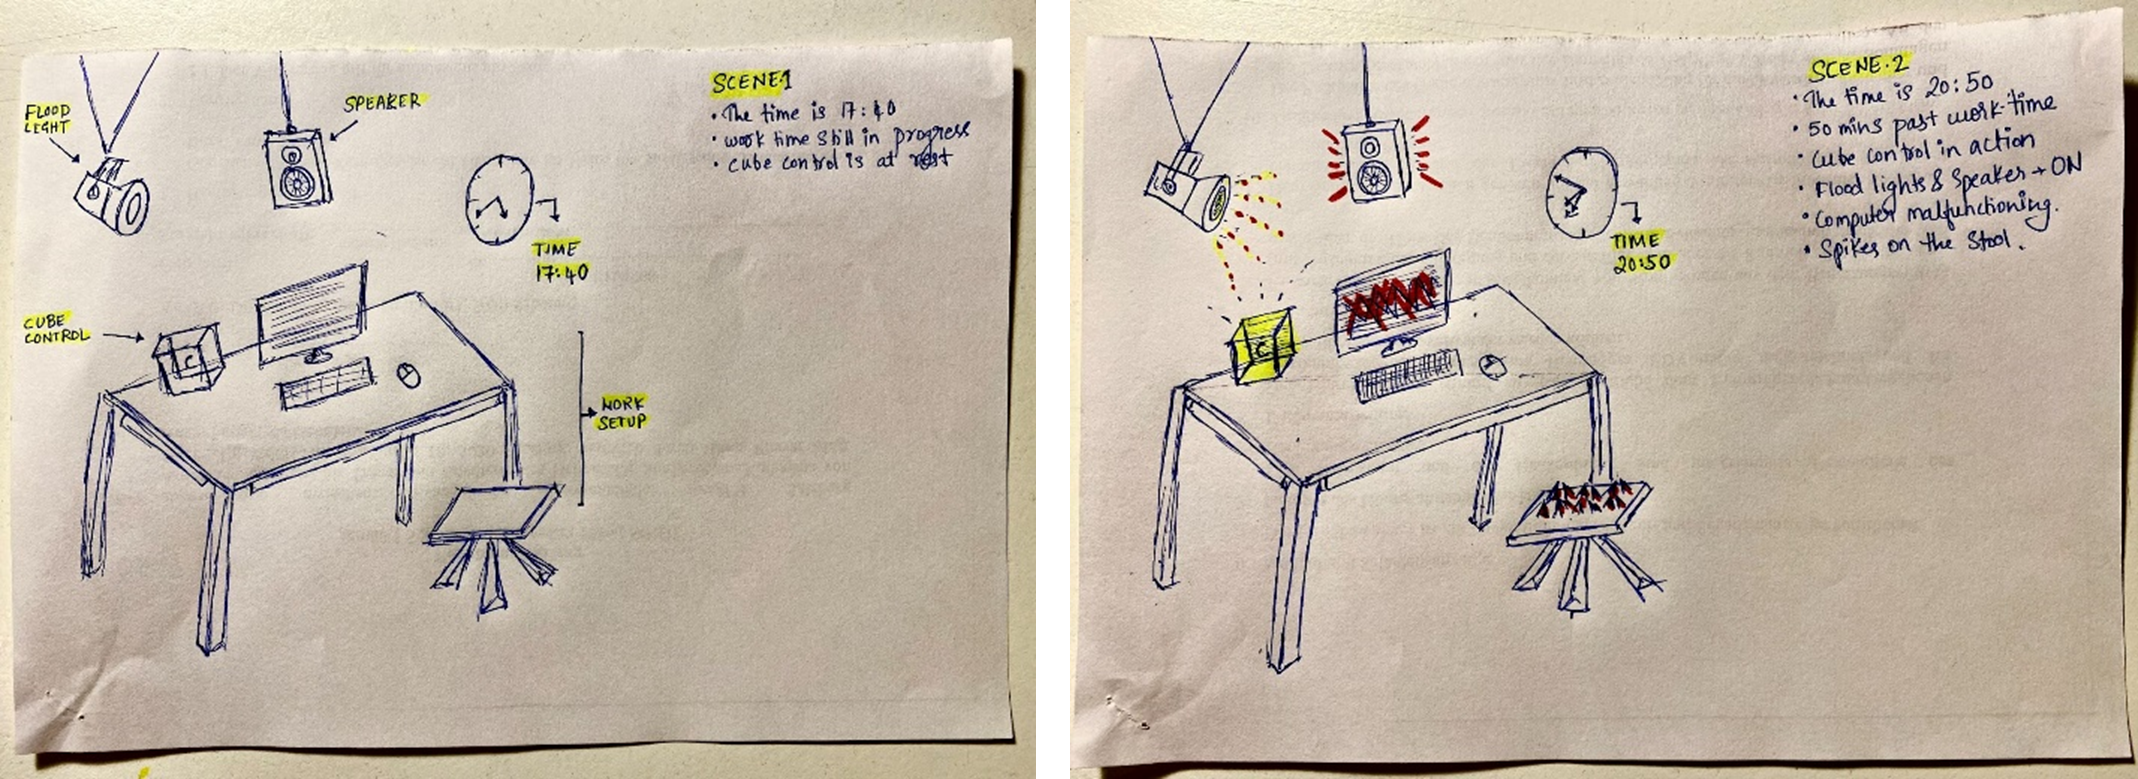 FLOOD
LIGHT
SPEAKER
SCENE1
• The time is 17:40
• work time still in progress
• cube control is at rest
TIME
17:40
CUBE
CONTROL
C
WORK
SETUP
SCENE.2
• The time is 20:50
• 50 mins past work-time
• Cube control in action
• Flood lights & Speaker → ON
• Computer malfunctioning.
• Spikes on the Stool.
TIME
20:50
C